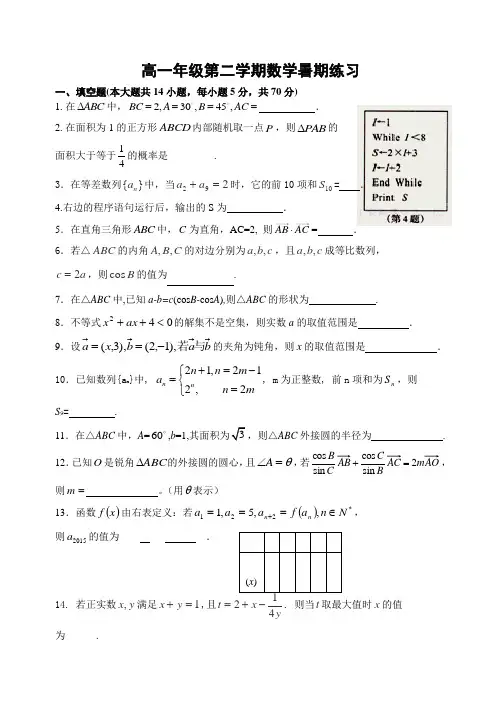 高一年级第二学期数学暑期练习
一、填空题(本大题共14小题，每小题5分，共70分)
1.在ΔABC中，BC=2,A=30°,B=45°,AC= .
2.在面积为1的正方形ABCD内部随机取一点P，则ΔPAB的
面积大于等于1/4的概率是 .
3．在等差数列{aₙ}中，当a₂+a₉=2时，它的前10项和S₁₀= .
4.右边的程序语句运行后，输出的S为 .
5．在直角三角形ABC中，C为直角，AC=2, 则AB·AC= .
6．若△ABC的内角A,B,C的对边分别为a,b,c，且a,b,c成等比数列，
c=2a，则cosB的值为 .
7．在△ABC中,已知a-b=c(cosB-cosA),则△ABC的形状为 .
8．不等式x²+ax+4<0的解集不是空集，则实数a的取值范围是 .
9．设a=(x,3),b=(2,-1),若a与b的夹角为钝角，则x的取值范围是 .
10．已知数列{aₙ}中, aₙ={2n+1, n=2m-1; 2ⁿ, n=2m, m为正整数, 前n项和为Sₙ，则
S₉= .
11．在△ABC中，A=60°,b=1,其面积为√3，则△ABC外接圆的半径为 .
12．已知O是锐角ΔABC的外接圆的圆心，且∠A=θ，若cosB/sinC AB+cosC/sinB AC=2mAO，
则m= 。（用θ表示）
13．函数f(x)由右表定义：若a₁=1,a₂=5,aₙ₊₂=f(aₙ),n∈N*，
则a₂₀₁₅的值为 .
(x)
14. 若正实数x,y满足x+y=1,且t=2+x-1/4y. 则当t取最大值时x的值
为 .
I←1
While I<8
S←2×I+3
I←I+2
End While
Print S
(第4题)